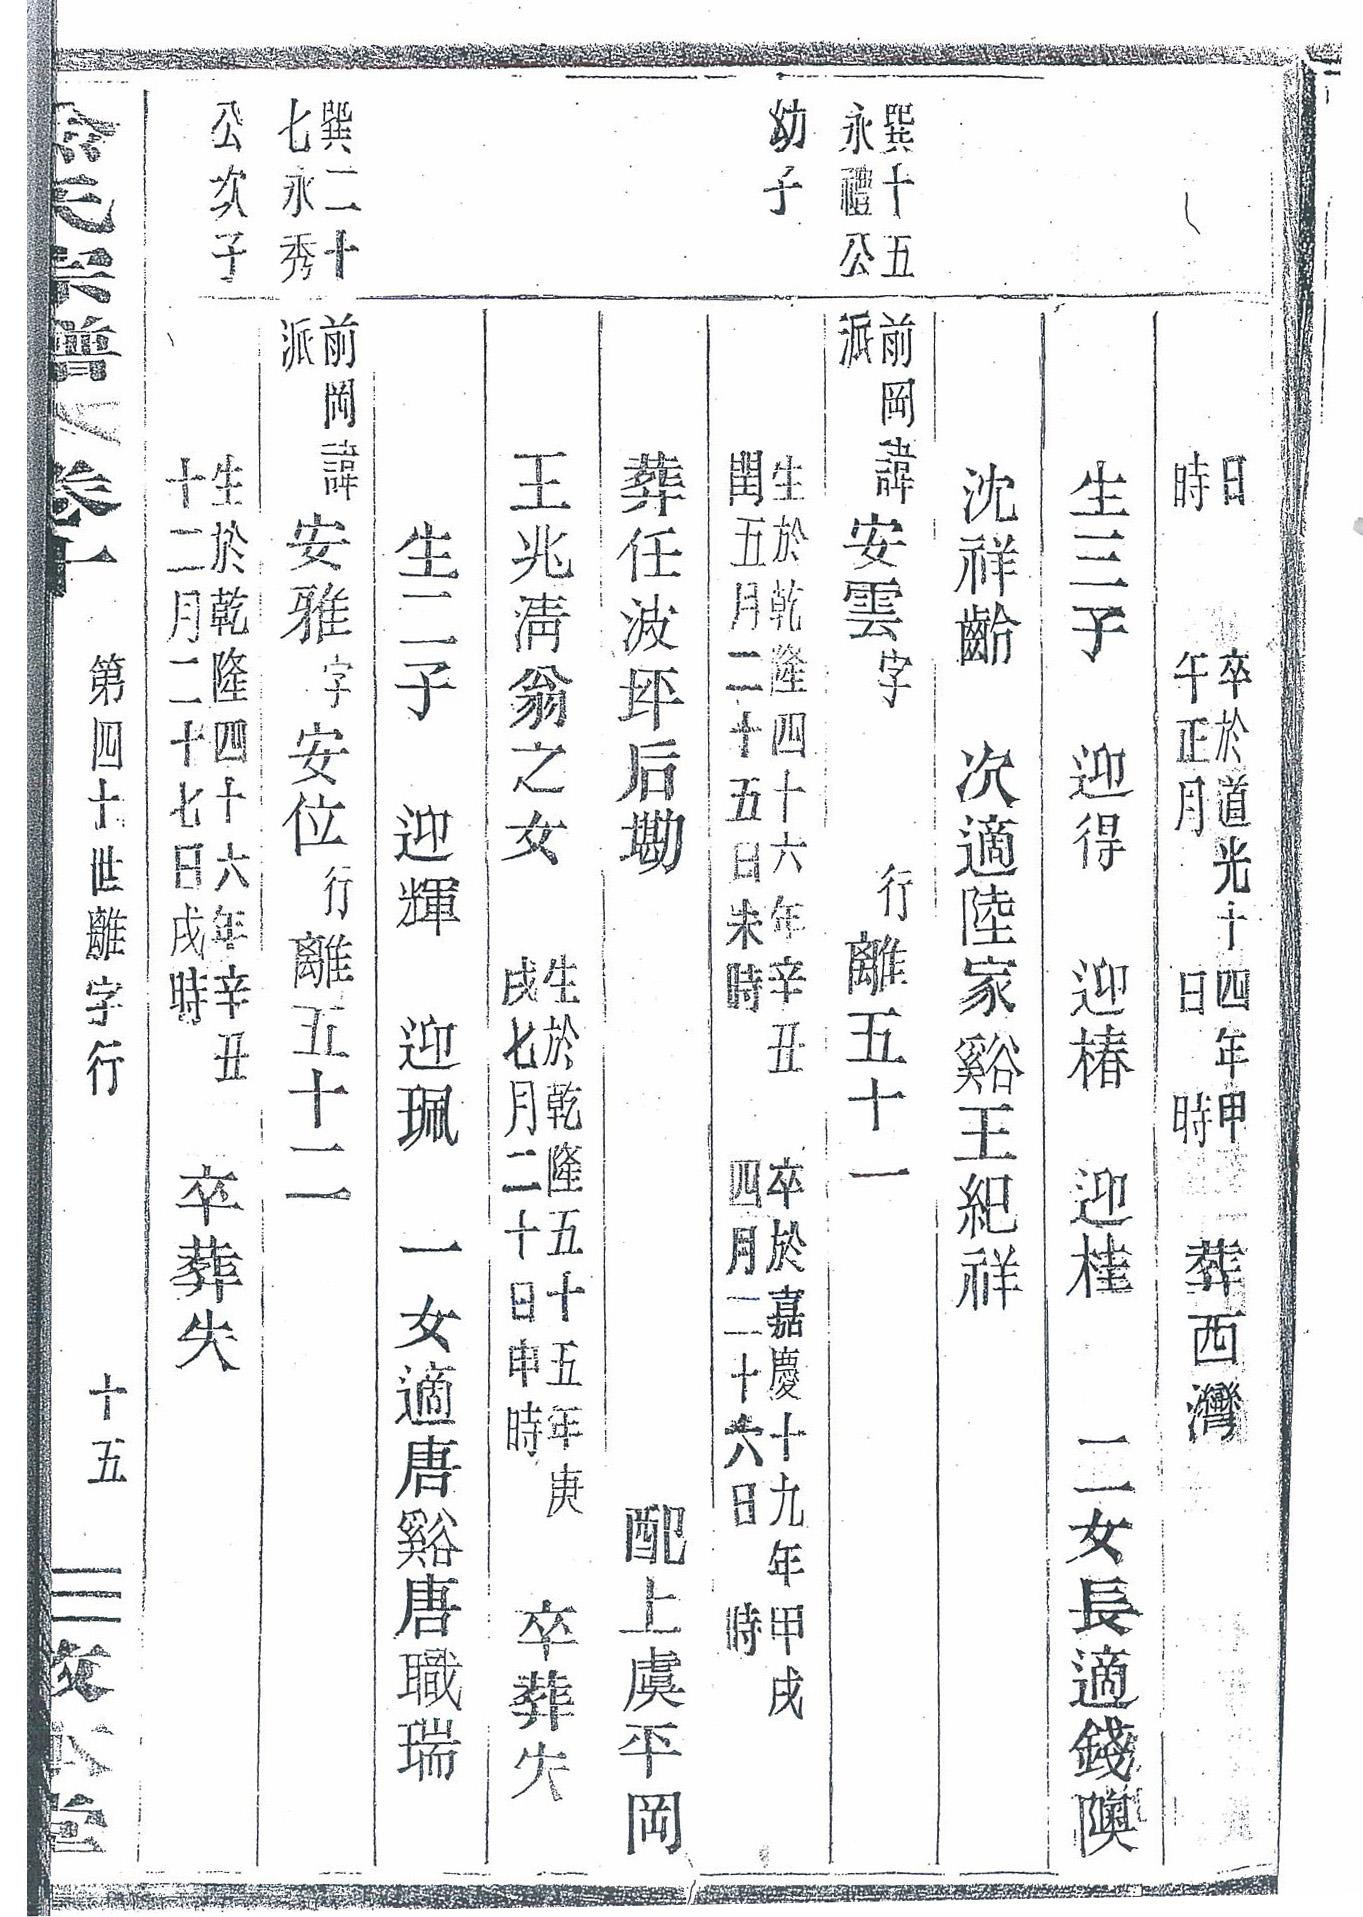 日時 卒於道光十四年甲午正月 日 時 葬西灣
生三子 迎得 迎椿 迎桂 二女長適錢隩
沈祥齡 次適陸家谿王紀祥
巽十五永禮公 前岡派諱安雲字 行離五十一
幼子 生於乾隆四十六年辛丑閏五月二十五日未時 卒於嘉慶十九年甲戌四月二十六日 時
葬任波坪后墈 配上虞平岡
王兆淸翁之女 生於乾隆五十五年庚戌七月二十日申時 卒葬失
生二子 迎輝 迎珮 一女適唐谿唐職瑞
巽二十七永秀 前岡派諱安雅字安位行離五十二
公次子 生於乾隆四十六年辛丑十二月二十七日戌時 卒葬失
氏宗譜 卷十 第四十世離字行 十五 堂